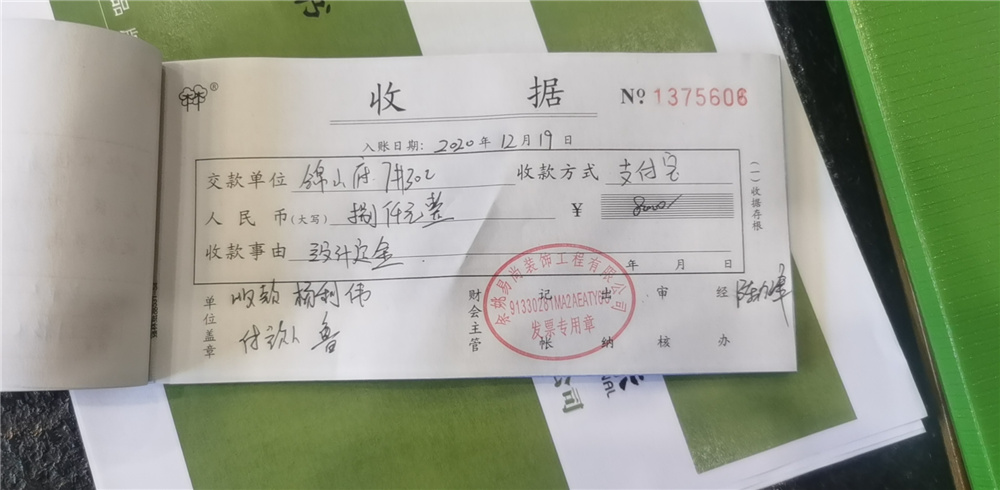 收据
Nº 1375606
入账日期: 2020年12月19日
交款单位 锦山府 7#302 收款方式 支付宝
人民币(大写) 捌仟元整 ¥ 8000/
收款事由 设计定金
年 月 日
(一)收据存根
单位盖章
收款 杨利伟
付款人 鲁
财会主管
记帐
出纳
审核
经办
余姚易尚装饰工程有限公司
发票专用章